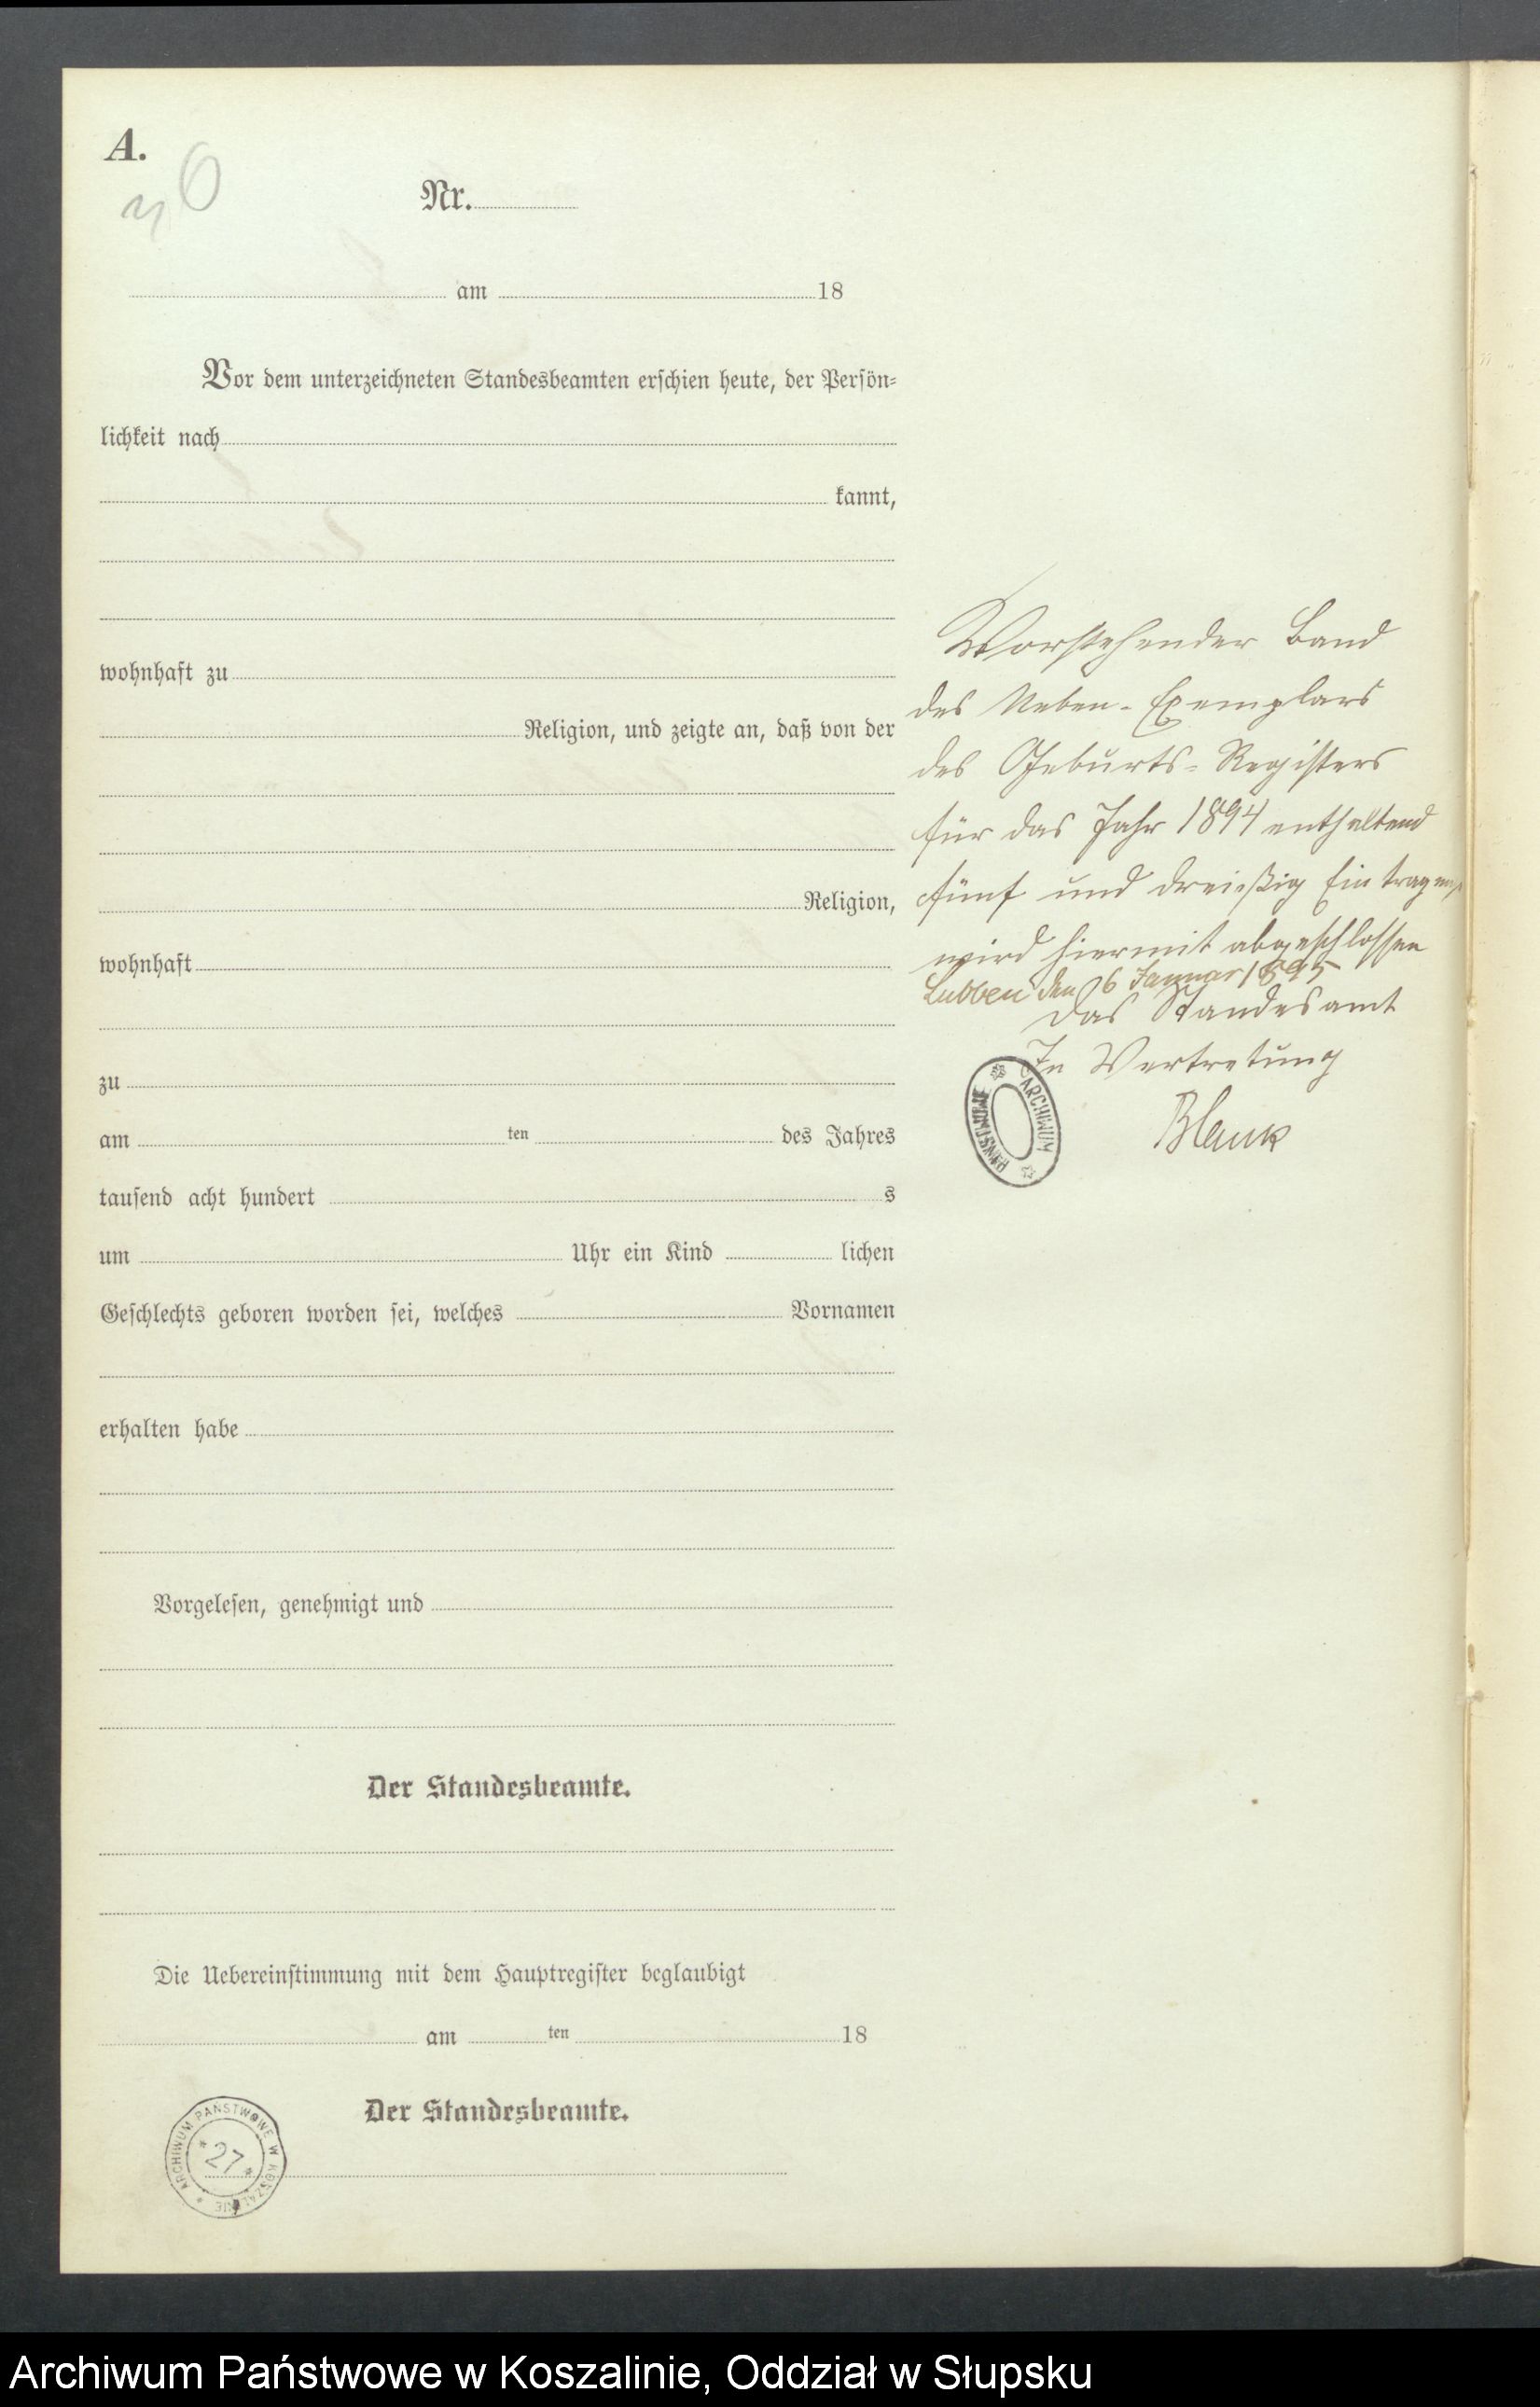 A.
Nr.
am 18
Vor dem unterzeichneten Standesbeamten erschien heute, der Persön-
lichkeit nach
kannt,
wohnhaft zu
Religion, und zeigte an, daß von der
Religion,
wohnhaft
zu
am ten des Jahres
tausend acht hundert s
um Uhr ein Kind lichen
Geschlechts geboren worden sei, welches Vornamen
erhalten habe
Vorgelesen, genehmigt und
Der Standesbeamte.
Die Uebereinstimmung mit dem Hauptregister beglaubigt
am ten 18
Der Standesbeamte.
Vorstehender Band
des Neben-Exemplars
des Geburts-Registers
für das Jahr 1894 enthaltend
fünf und dreißig
wird hiermit abgeschlossen
Lubben den 6 Januar 1895
Das Standesamt
In Vertretung
Blank
ARCHIWUM PAŃSTWOWE
ARCHIWUM PAŃSTWOWE W KOSZALINIE
27
Archiwum Państwowe w Koszalinie, Oddział w Słupsku